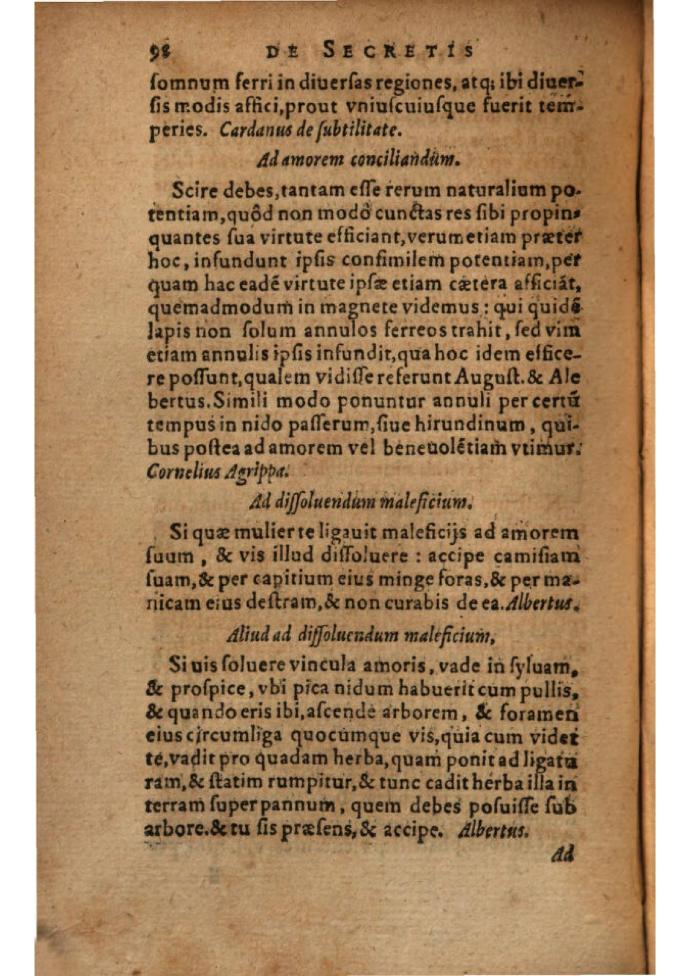 98 DE SECRETIS
somnum ferri in diuersas regiones, atq; ibi diuer-
sis modis affici, prout vniuscuiusque fuerit tem-
peries. Cardanus de subtilitate.
Ad amorem conciliandum.
Scire debes, tantam esse rerum naturalium po-
tentiam, quôd non modò cunctas res sibi propin-
quantes sua virtute efficiant, verum etiam præter
hoc, infundunt ipsis consimilem potentiam, per
quam hac eadē virtute ipsæ etiam cætera afficiāt,
quemadmodum in magnete videmus: qui quidē
lapis non solum annulos ferreos trahit, sed vim
etiam annulis ipsis infundit, qua hoc idem effice-
re possunt, qualem vidisse referunt August. & Ale
bertus. Simili modo ponuntur annuli per certū
tempus in nido passerum, siue hirundinum, qui-
bus postea ad amorem vel beneuolētiam vtimur.
Cornelius Agrippa.
Ad dissoluendum maleficium.
Si quæ mulier te ligauit maleficijs ad amorem
suum, & vis illud dissoluere: accipe camisiam
suam, & per capitium eius minge foras, & per ma-
nicam eius destram, & non curabis de ea. Albertus.
Aliud ad dissoluendum maleficium,
Si uis soluere vincula amoris, vade in syluam,
& prospice, vbi pica nidum habuerit cum pullis,
& quando eris ibi, ascende arborem, & foramen
eius circumliga quocumque vis, quia cum videt
te, vadit pro quadam herba, quam ponit ad ligatu
ram, & statim rumpitur, & tunc cadit herba illa in
terram super pannum, quem debes posuisse sub
arbore. & tu sis præsens, & accipe. Albertus.
Ad